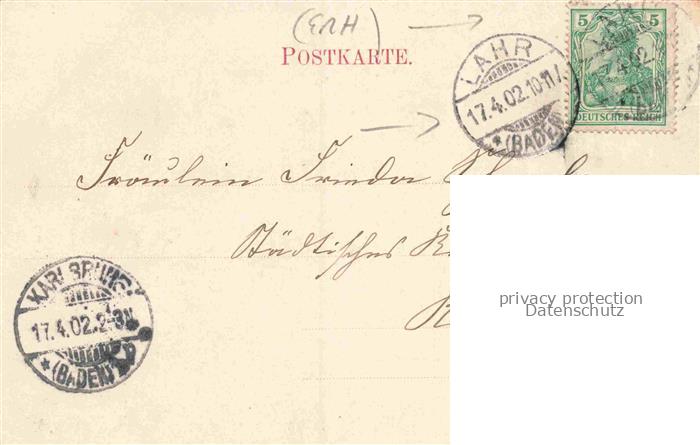 (ERH)
POSTKARTE.
LAHR
17.4.02.10-11V.
* (BADEN)
5 5
DEUTSCHES REICH
Fräulein Frieda
Städtisches
KARLSRUHE
17.4.02.2-3N.
* (BADEN)
privacy protection
Datenschutz